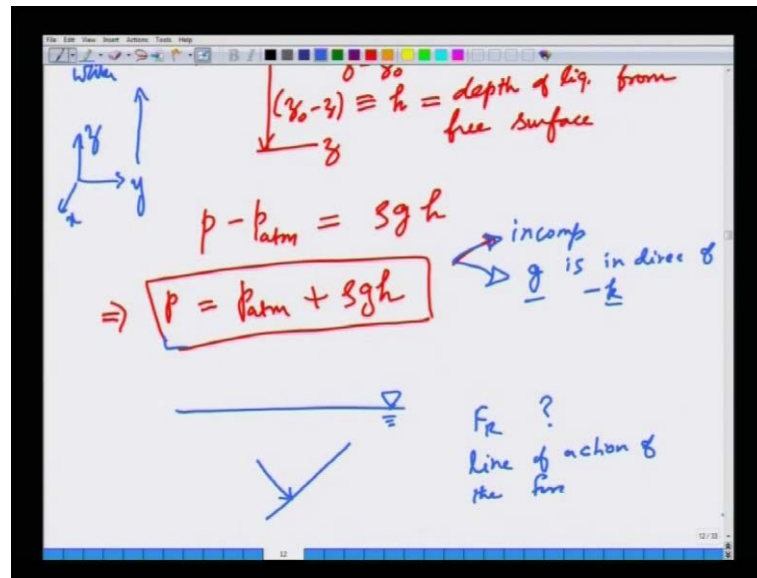 File Edit View Insert Actions Tools Help
z
y
x
z₀
(z₀-z) ≡ h = depth of liq. from
free surface
z
p - p_atm = ρgh
⇒ p = p_atm + ρgh
incomp
g is in direc of
-k
F_R ?
line of action of
the
12/33
12